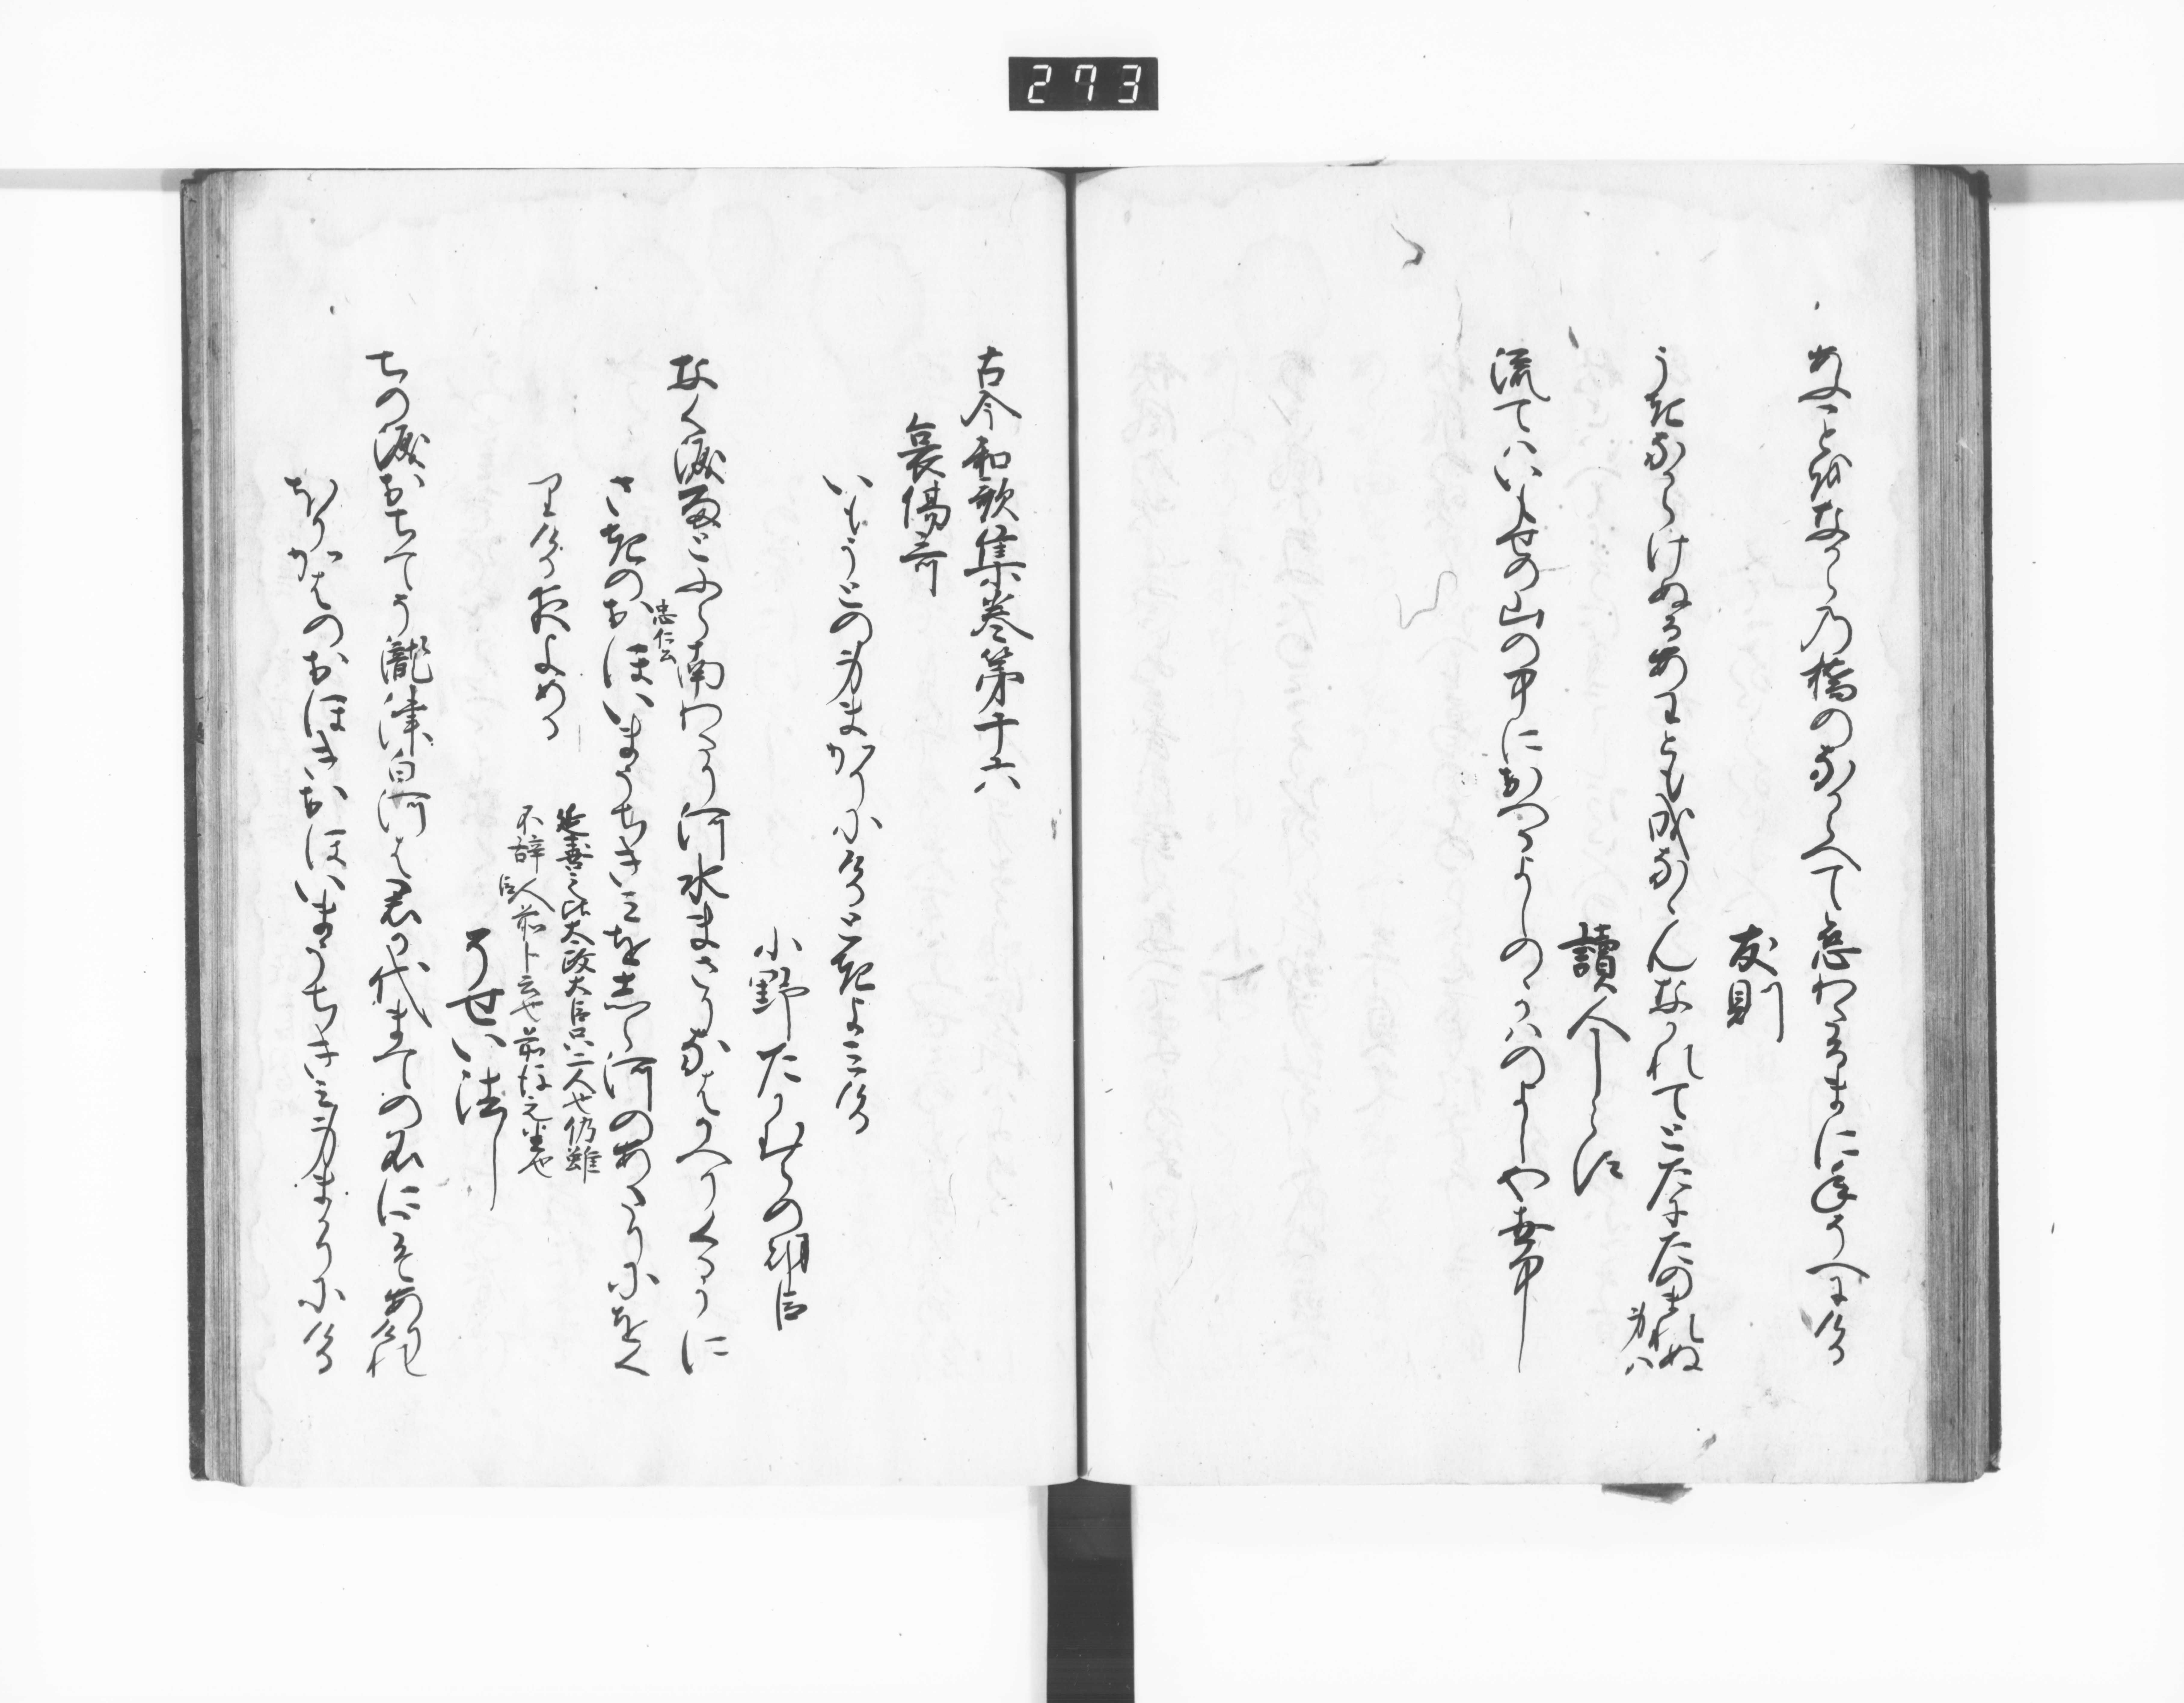 273
あふことをなからの橋のなからへて恋わたるまに年そへにける
友則
うきなからけぬるあわとも成なゝんなかれてとたにたのまれぬ身ハ
讀人しらす
流てハいもせの山の中におつるよしのゝ河のよしや世中
古今和歌集巻第十六
哀傷哥
いもうとの身まかりにける時よみける
小野たかむらの朝臣
なく涙雨とふら南わたり河水まさりなはかへりくるかに
さきのおほいまうちきみを志ら河のあたりにをく
忠仁公
りける夜よめる
延喜之比太政大臣只二人也仍雖
不辞臣人前ト云也前坊之先也
そせい法し
ちの涙おちてそ瀧津白河は君か代まての名にこそ有けれ
ほりかはのおほきおほいまうちきみ身まかりにける